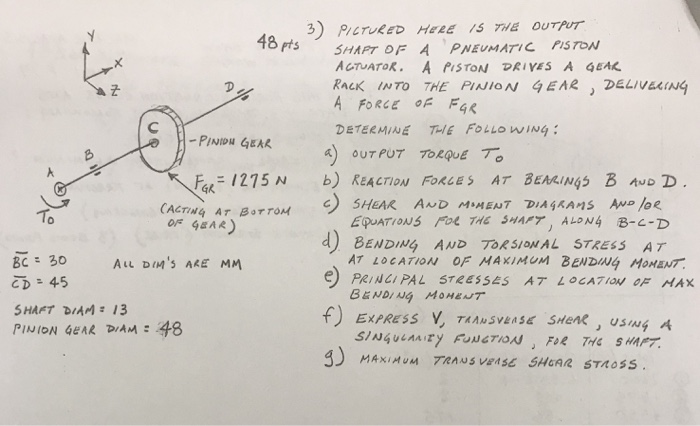 48 pts
3) PICTURED HERE IS THE OUTPUT
SHAFT OF A PNEUMATIC PISTON
ACTUATOR. A PISTON DRIVES A GEAR
RACK INTO THE PINION GEAR, DELIVERING
A FORCE OF FGR
DETERMINE THE FOLLOWING:
a) OUTPUT TORQUE To
b) REACTION FORCES AT BEARINGS B AND D.
c) SHEAR AND MOMENT DIAGRAMS AND/OR
EQUATIONS FOR THE SHAFT, ALONG B-C-D
d) BENDING AND TORSIONAL STRESS AT
AT LOCATION OF MAXIMUM BENDING MOMENT.
e) PRINCIPAL STRESSES AT LOCATION OF MAX
BENDING MOMENT
f) EXPRESS V, TRANSVERSE SHEAR, USING A
SINGULARITY FUNCTION, FOR THE SHAFT.
g) MAXIMUM TRANSVERSE SHEAR STRESS.
Y
X
Z
D
C
- PINION GEAR
B
A
To
FGR = 1275 N
(ACTING AT BOTTOM
OF GEAR)
BC = 30
CD = 45
ALL DIM'S ARE MM
SHAFT DIAM = 13
PINION GEAR DIAM = 48